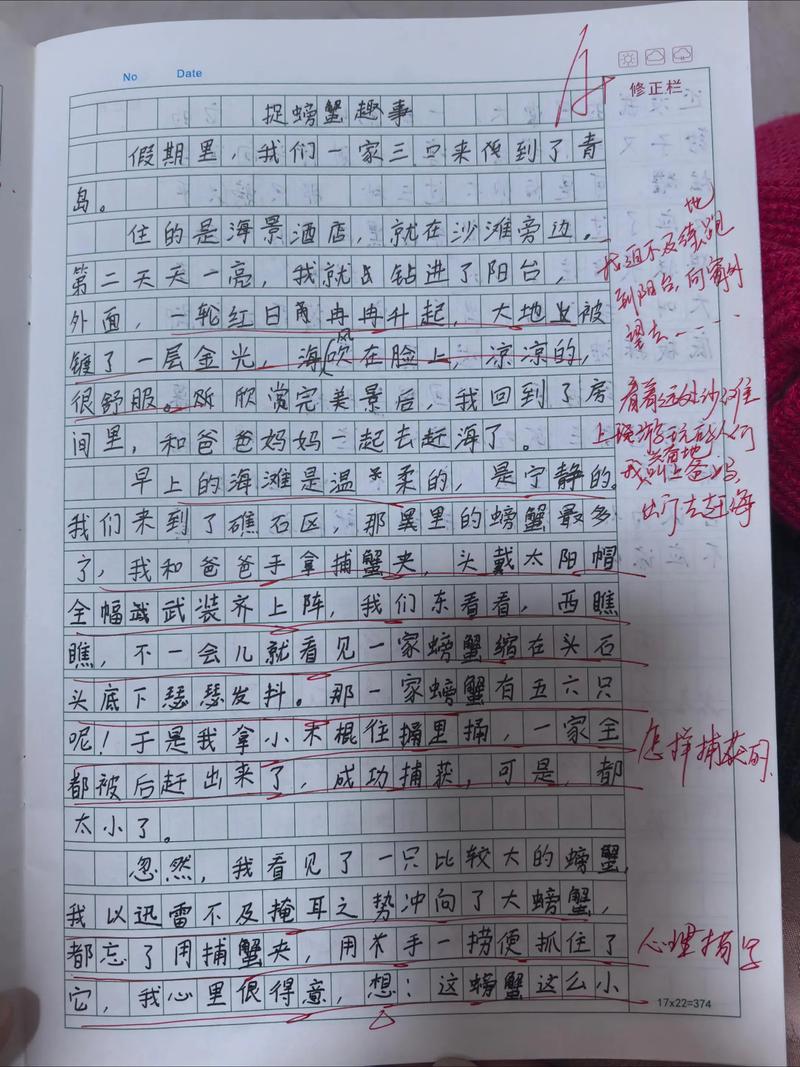 No Date
修正栏
捉螃蟹趣事
假期里，我们一家三口来到了青
岛。
住的是海景酒店，就在沙滩旁边。
第二天天一亮，我就钻进了阳台，
外面，一轮红日冉冉升起，大地被
镀了一层金光，海风吹在脸上，凉凉的，
很舒服。欣赏完美景后，我回到了房
间里，和爸爸妈妈一起去赶海了。
早上的海滩是温柔的，是宁静的。
我们来到了礁石区，那里的螃蟹最多
了，我和爸爸手拿捕蟹夹，头戴太阳帽
全幅武装齐上阵，我们东看看，西瞧
瞧，不一会儿就看见一家螃蟹缩在石
头底下瑟瑟发抖。那一家螃蟹有五六只
呢！于是我拿小木棍往里捅，一家全
都被赶出来了，成功捕获，可是，都
太小了。
忽然，我看见了一只比较大的螃蟹，
我以迅雷不及掩耳之势冲向了大螃蟹，
都忘了用捕蟹夹，用手一捞便抓住了
它，我心里很得意，想：这螃蟹这么小
我迫不及待地跑
到阳台，向窗外
望去……
看着远处沙滩
上游玩的人们
我兴奋地叫上爸妈，
出门去赶海
怎样捕获的
心理描写
17x22=374